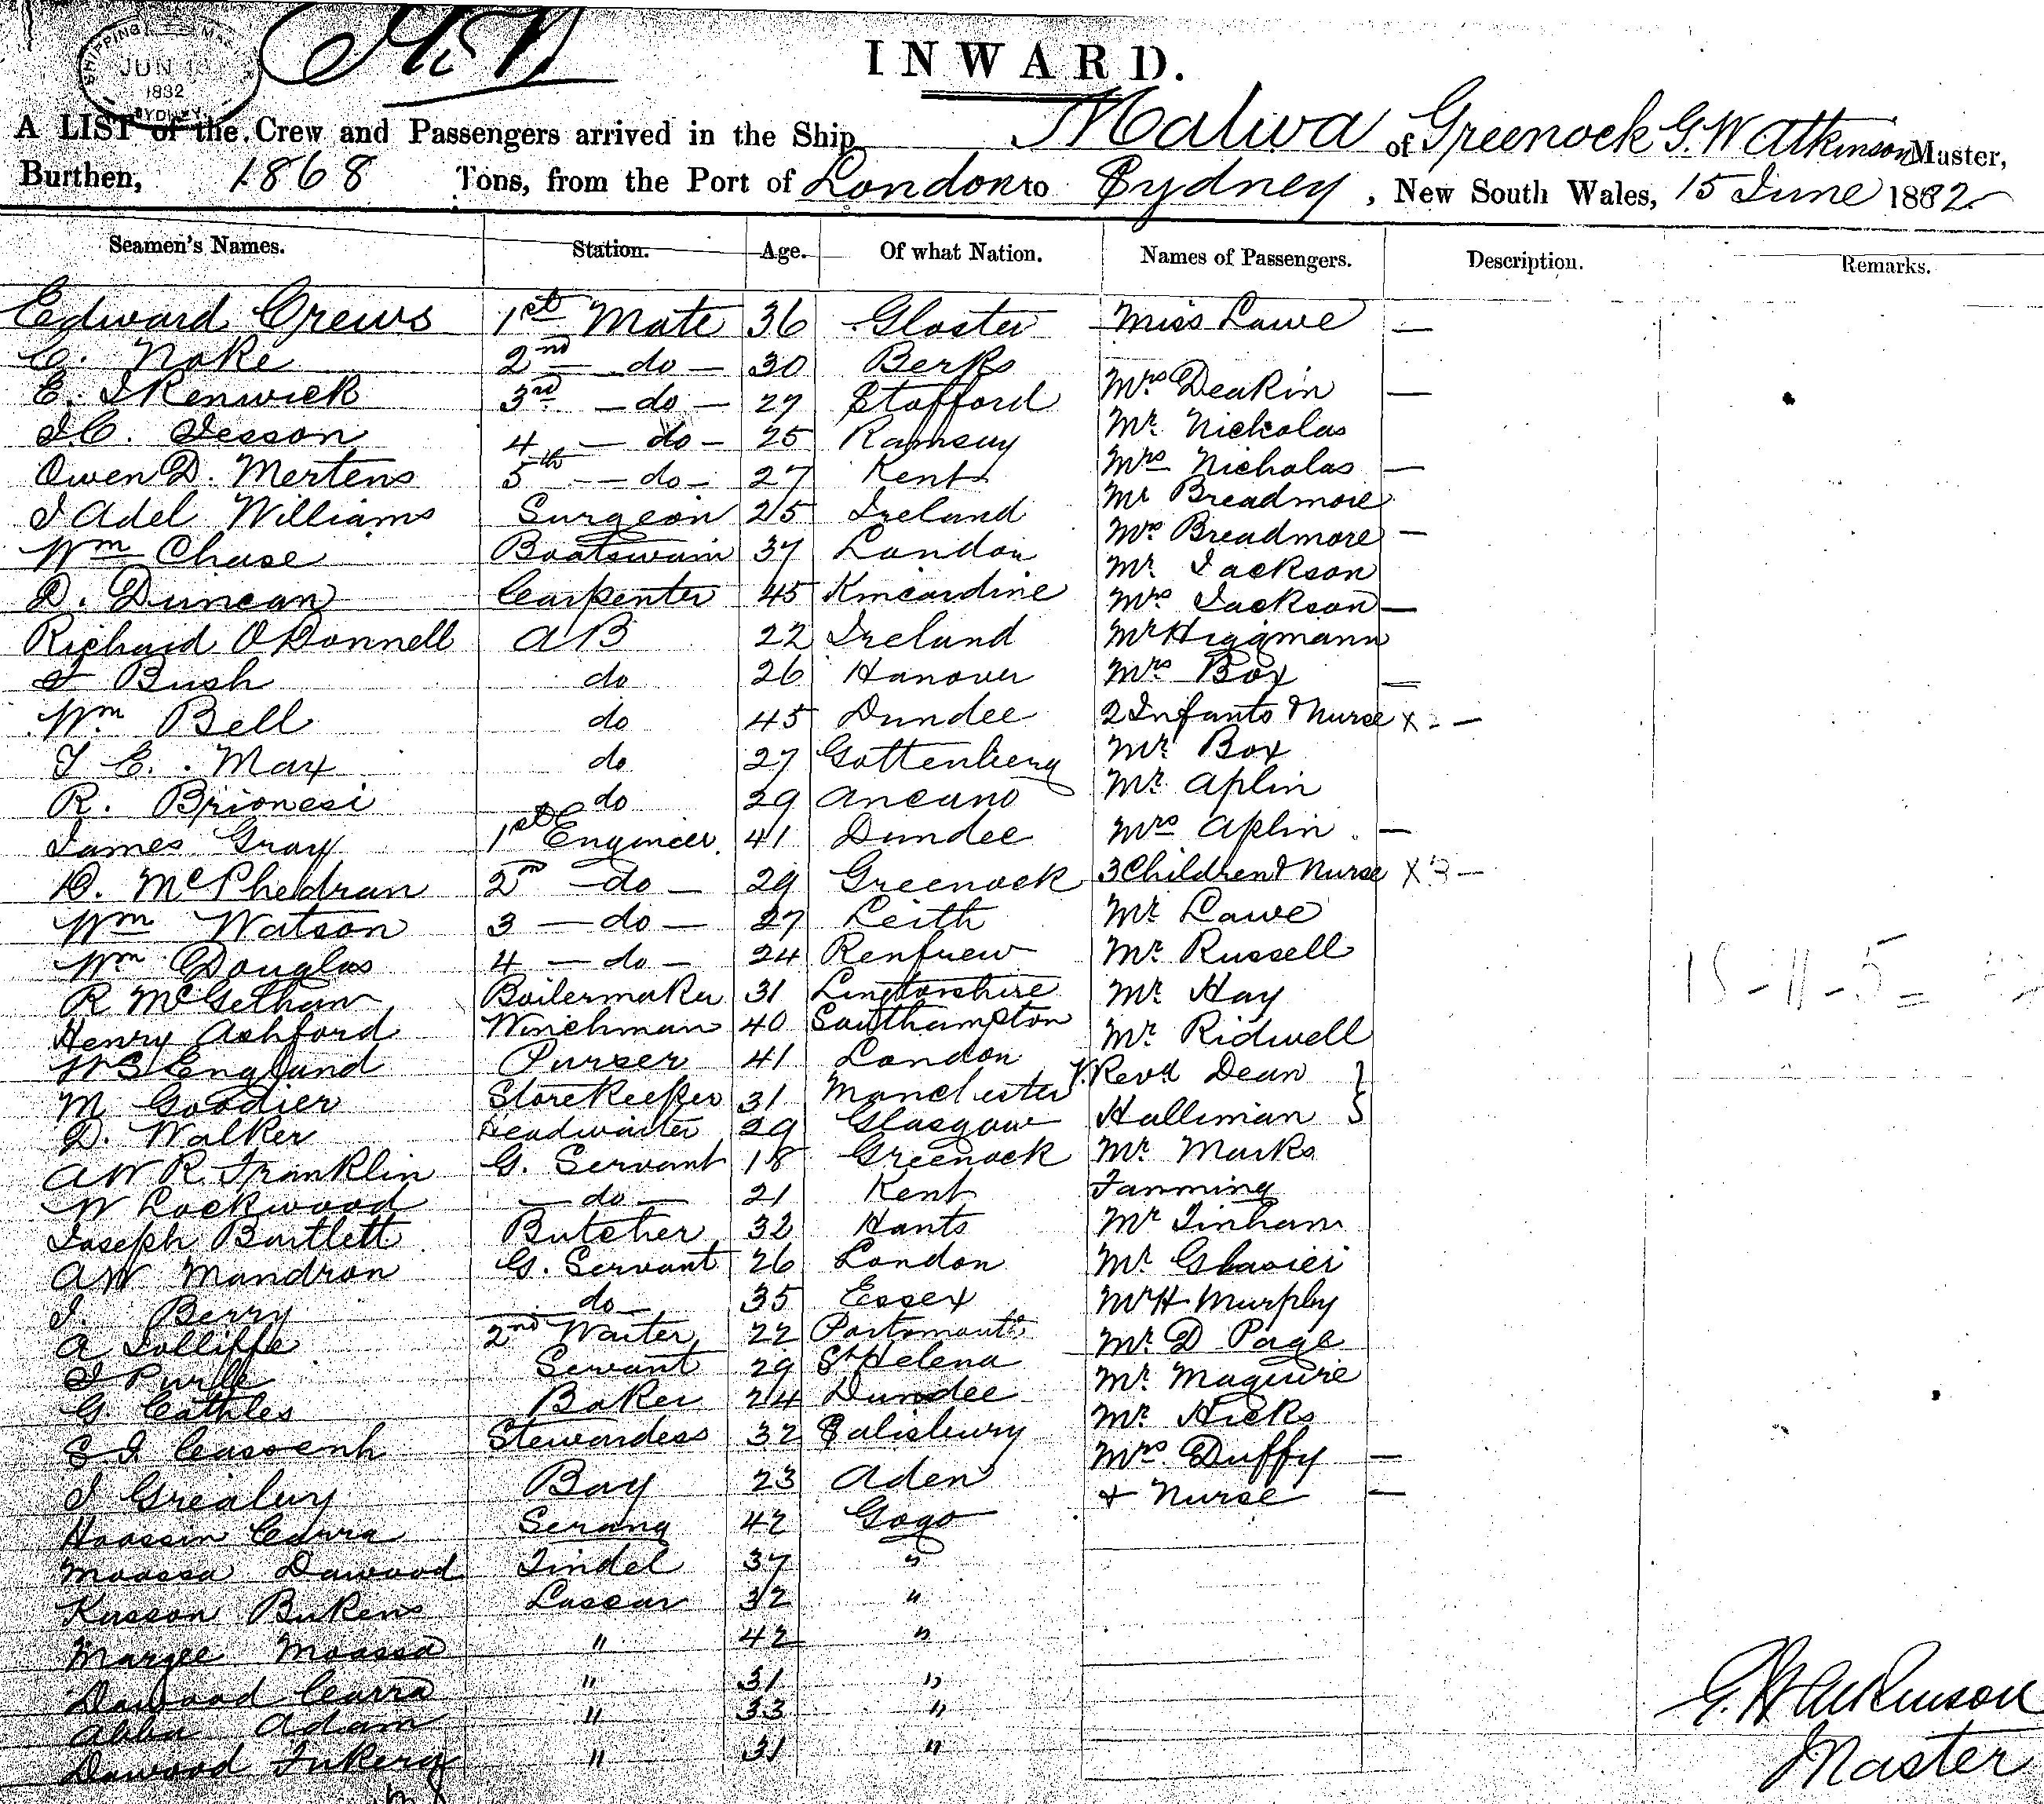 SHIPPING MAS
JUN 1
1882
SYDNEY
INWARD.
A LIST of the Crew and Passengers arrived in the Ship Malwa of Greenock G. W Atkinson Master,
Burthen, 1868 Tons, from the Port of London to Sydney, New South Wales, 15 June 1882
Seamen's Names. Station. Age. Of what Nation. Names of Passengers. Description. Remarks.
Edward Crews 1st Mate 36 Gloster Miss Lawe —
C. Noke 2nd — do — 30 Berks
E. J Renwick 3rd — do — 27 Stafford Mrs Deakin —
J.C. Jesson 4 — do — 25 Ramsey Mr Nicholas
Owen D. Mertens 5th — do — 27 Kent Mrs Nicholas —
J Adel Williams Surgeon 25 Ireland Mr Breadmore
Wm Chase Boatswain 37 London Mrs Breadmore —
D. Duncan Carpenter 45 Kincardine Mr Jackson
Mrs Jackson —
Richard O Donnell AB 22 Ireland Mr Higgmann
J Bush do 26 Hanover Mrs Box —
Wm Bell do 45 Dundee 2 Infants & Nurse x - —
T E. Max do 27 Gottenberg Mr Box
R. Brionesi do 29 Ancano Mr Aplin
James Gray 1st Engineer 41 Dundee Mrs Aplin —
D. McPhedran 2nd — do — 29 Greenock 3 Children & Nurse x 3 —
Wm Watson 3 — do — 27 Leith Mr Lawe
Wm Douglas 4 — do — 24 Renfrew Mr Russell
R McGethan Boilermaker 31 Mr Hay 15 - 11 - 5 =
Henry Ashford Winchman 40 Southampton Mr Ridwell
W S England Purser 41 London V. Revd Dean }
M Goodier StoreKeeper 31 Manchester Hallinan }
D. Walker Headwaiter 29 Glasgow
A W R. Franklin G. Servant 18 Greenock Mr Marks
W Lockwood — do — 21 Kent Fanming
Joseph Bartlett Butcher 32 Hants Mr Tinham
AW Mandron G. Servant 26 London Mr Glasier
J. Berry do 35 Essex Mr H Murphy
A Jolliffe 2nd Waiter 22 Portsmouth Mr D Page
J Servant 29 St Helena Mr Maguire
G. Cathles Baker 24 Dundee Mr Hicks
S J Stewardess 32 Salisbury Mrs Duffy —
J Boy 23 Aden & Nurse —
Hoossin Carra Serang 42 Gogo
Moossa Dawood Tindel 37 "
Kasson Lascar 32 "
Margee Moossa " 42 "
Dawood Carra " 31 "
Abba Adam " 33 "
Dawood " 31 "
G. W Atkinson
Master